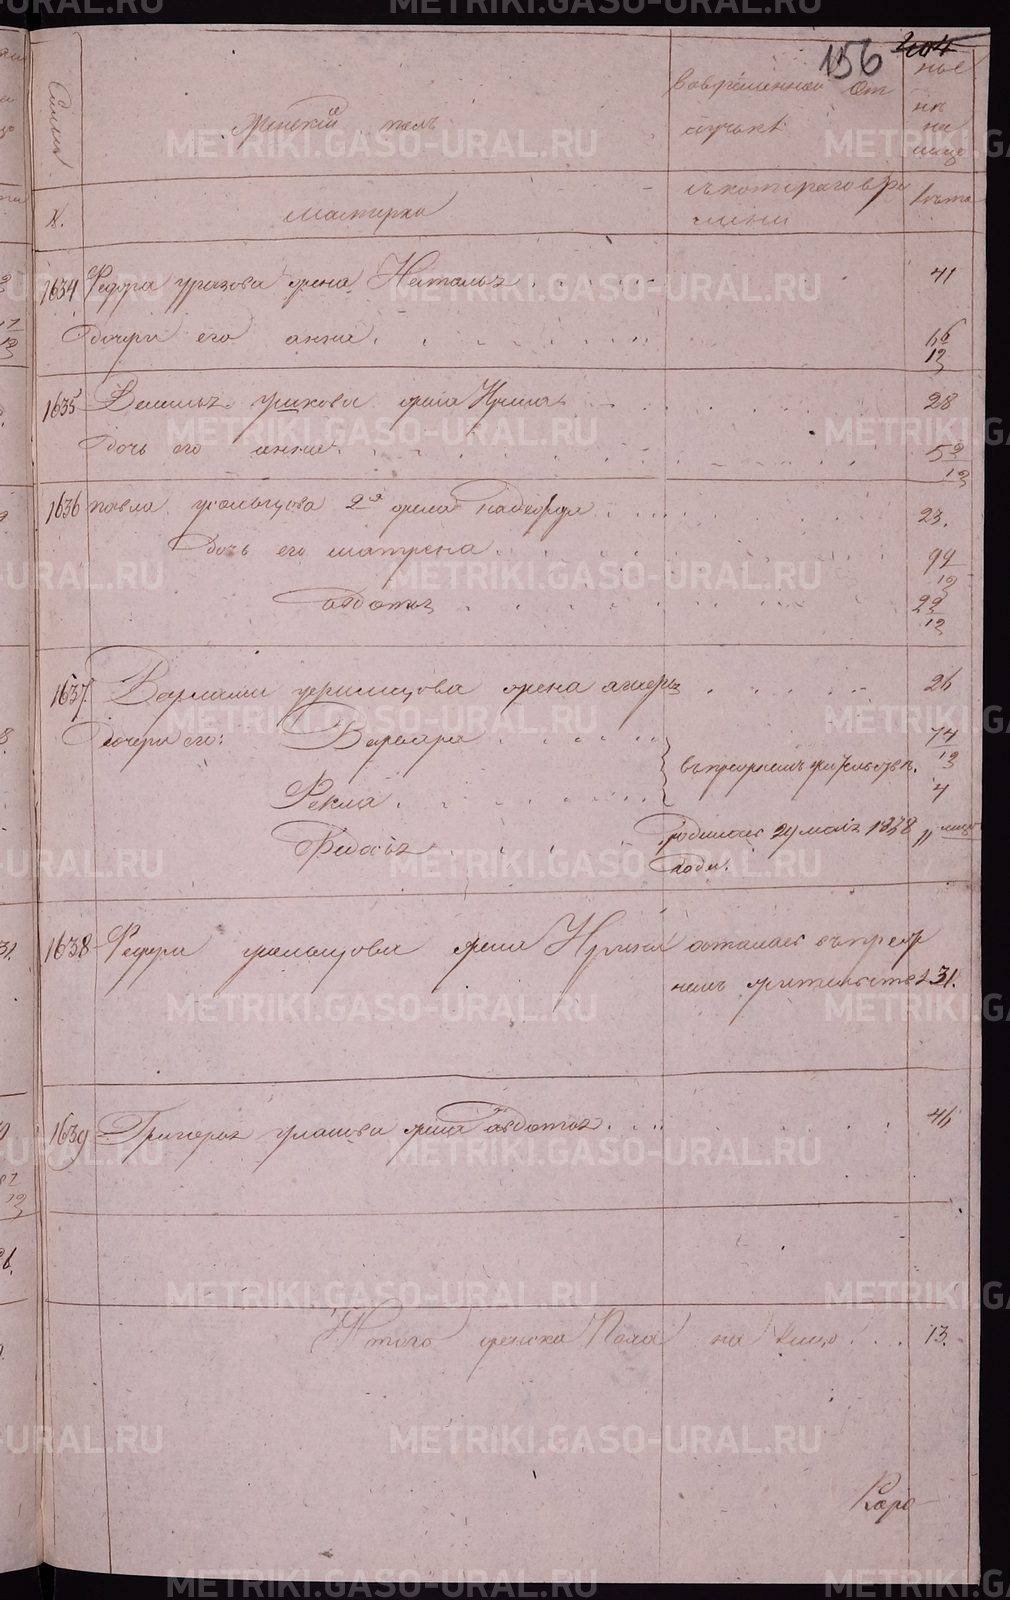 156 204
Семьи
женскій полъ
Вовременной отлучкѣ
нынѣ на лицо
№.
мастерко
съ котораго времени
Лѣта
1634 Федора урпзова жена Наталья 41
Дочери его анна 16/12
1635 Василья ушкова жена Ирина 28
Дочь его анна 5 9/12
1636 павла усольцова 2я жена надежда 23.
Дочь его матрена 9 9/12
авдотья 2 9/12
1637. Варлами усольцова жена агнеръя 26
Дочери его: Варвара
въ прежнемъ жительствѣ.
Текла 4
Федосья родилась 29 маія 1838 „ лицо
года.
1638 Федора усольцова жена Ирина осталась въ преж
немъ жительствѣ 31.
1639 Григорья улашева жена авдотья 46
Итого женска Пола на лицо 13.
Каро